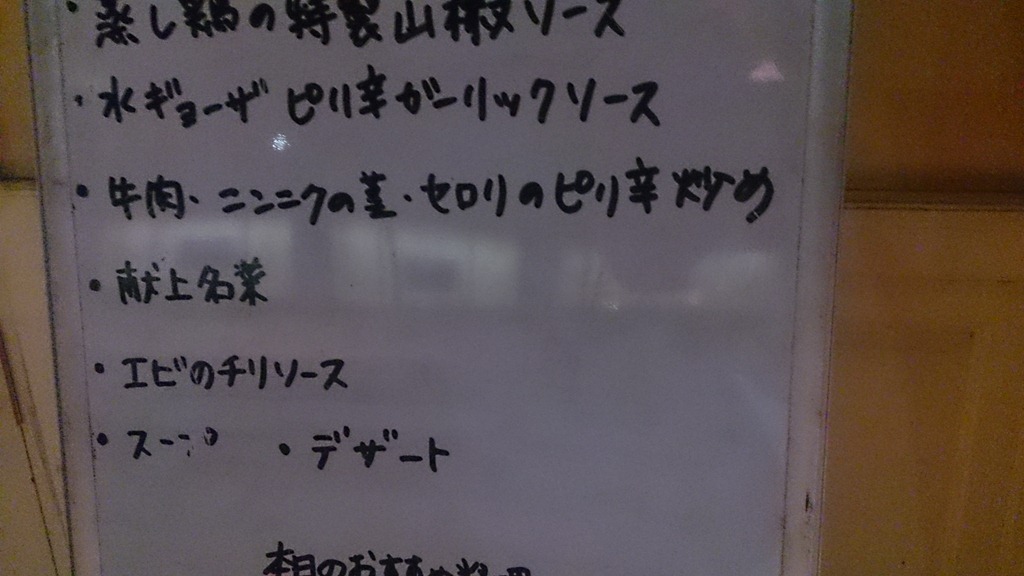 ・蒸し鶏の特製山椒ソース
・水ギョーザ ピリ辛ガーリックソース
・牛肉・ニンニクの茎・セロリのピリ辛炒め
・献上名菜
・エビのチリソース
・スープ ・デザート
本日のおすすめ料理